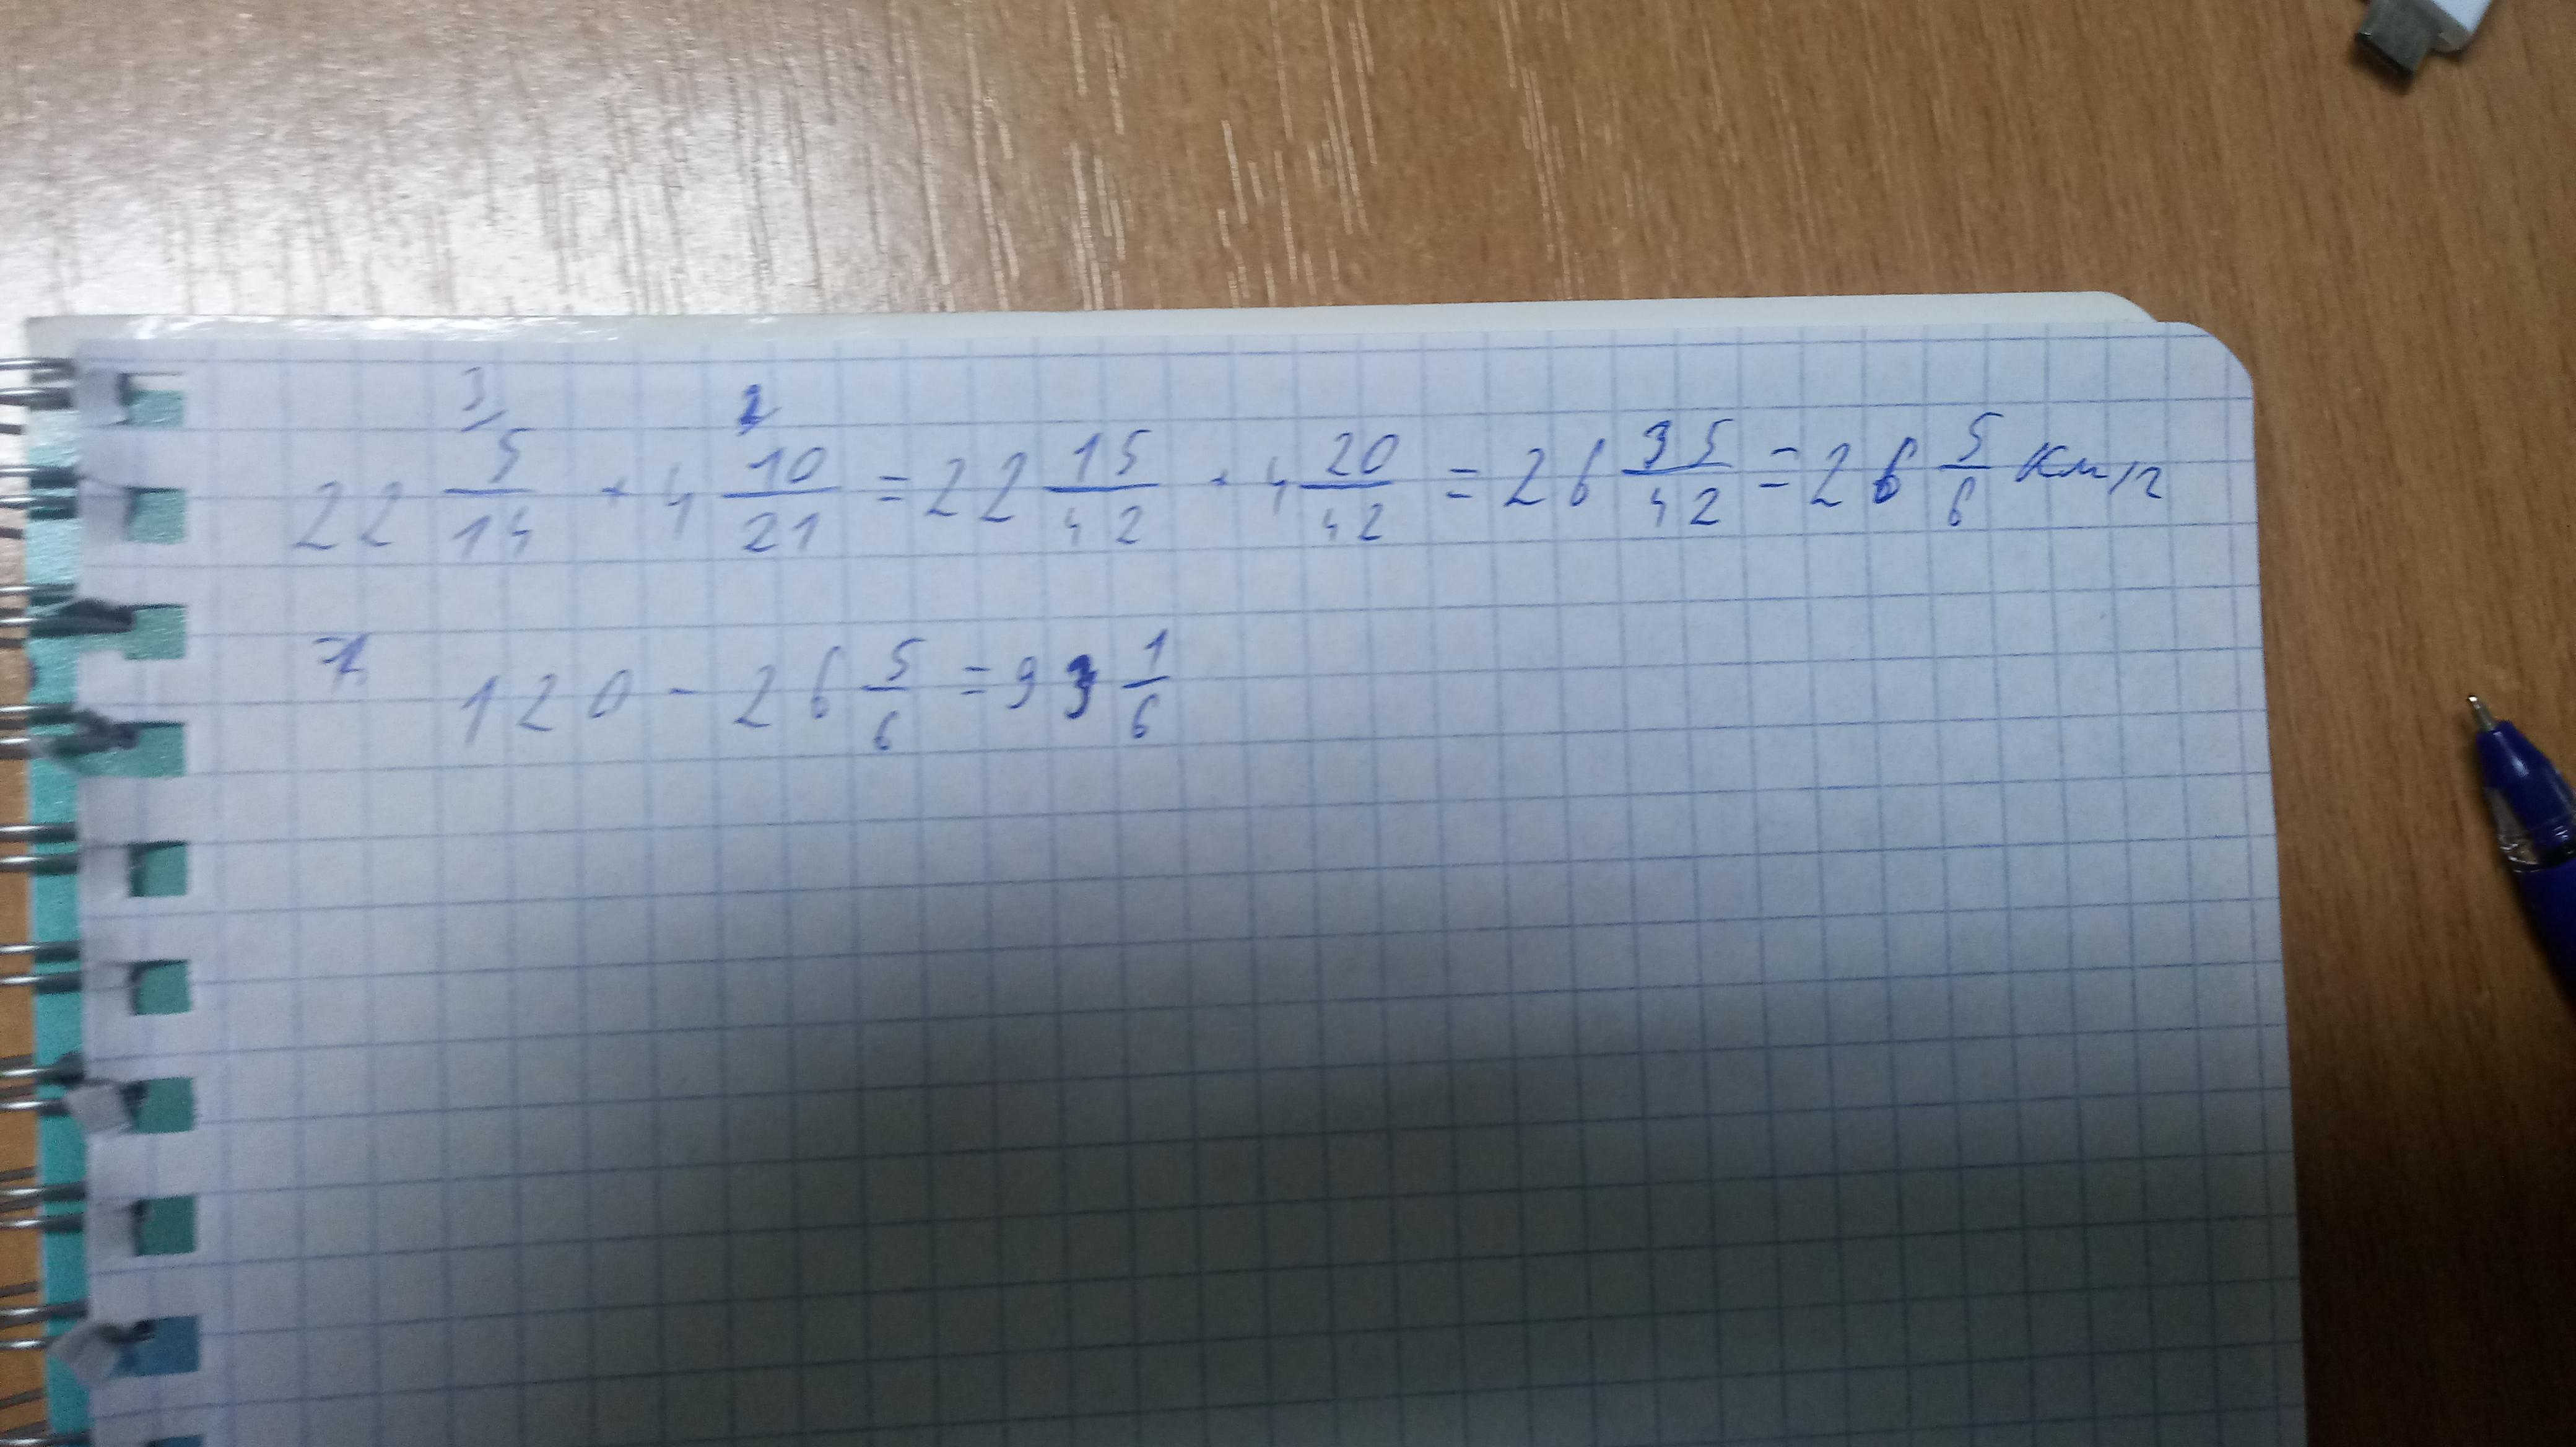 22 5/14 + 4 10/21 = 22 15/42 + 4 20/42 = 26 35/42 = 26 5/6 км/г
120 - 26 5/6 = 93 1/6